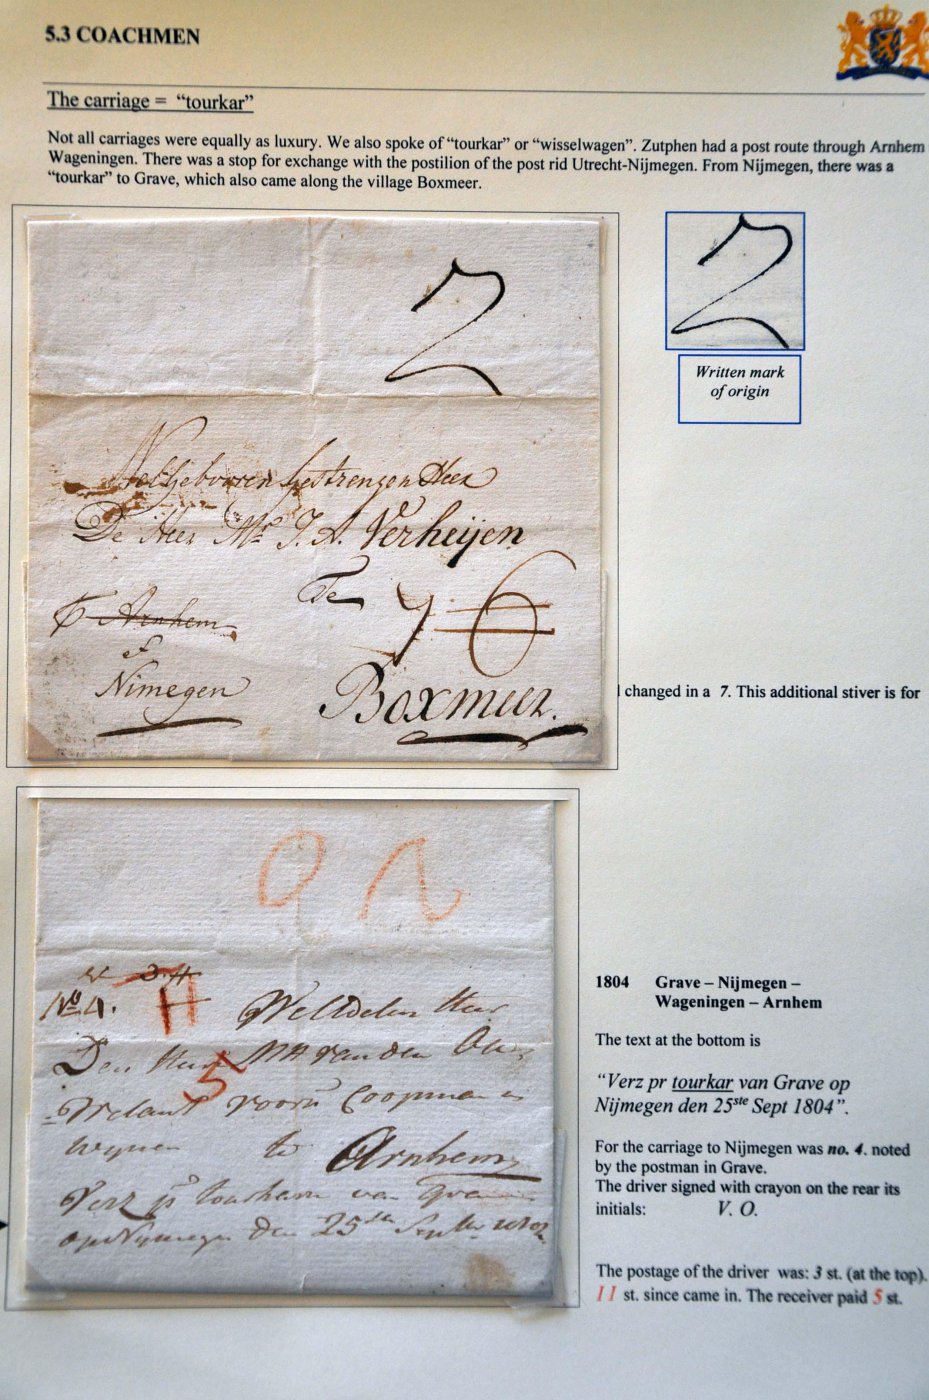 5.3 COACHMEN
The carriage = “tourkar”
Not all carriages were equally as luxury. We also spoke of “tourkar” or “wisselwagen”. Zutphen had a post route through Arnhem
Wageningen. There was a stop for exchange with the postilion of the post rid Utrecht-Nijmegen. From Nijmegen, there was a
“tourkar” to Grave, which also came along the village Boxmeer.
Z
Z
Written mark
of origin
WelGebooren Gestrengen Heer
De Heer Mr J. A. Verheijen
Te
7 6
Arnhem
Nimegen
Boxmeer.
l changed in a 7. This additional stiver is for
No 4.
11
WelEdelen Heer
Den Heer van den
5
voorn Coopman in
wynen te Arnhem
Verz pr tourkarre van Grave
op Nymegen den 25ste Septr
1804 Grave – Nijmegen –
Wageningen – Arnhem
The text at the bottom is
“Verz pr tourkar van Grave op
Nijmegen den 25ste Sept 1804”.
For the carriage to Nijmegen was no. 4. noted
by the postman in Grave.
The driver signed with crayon on the rear its
initials: V. O.
The postage of the driver was: 3 st. (at the top).
11 st. since came in. The receiver paid 5 st.